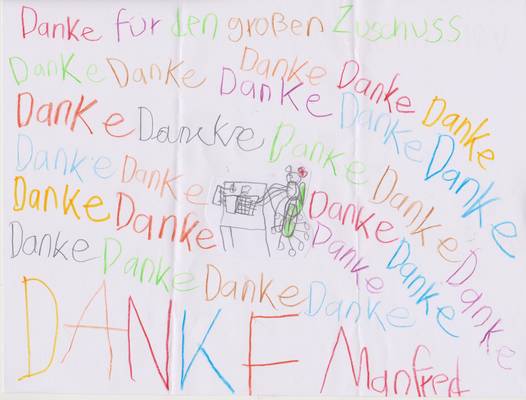 Danke für den großen Zuschuss
Danke Danke Danke Danke
Danke Danke
Danke Danckre Danke Danke Danke
Danke Danke Danke
Danke Danke Danke
Danke Danke Danke Danke Danke Danke Danke
DANKE Manfred